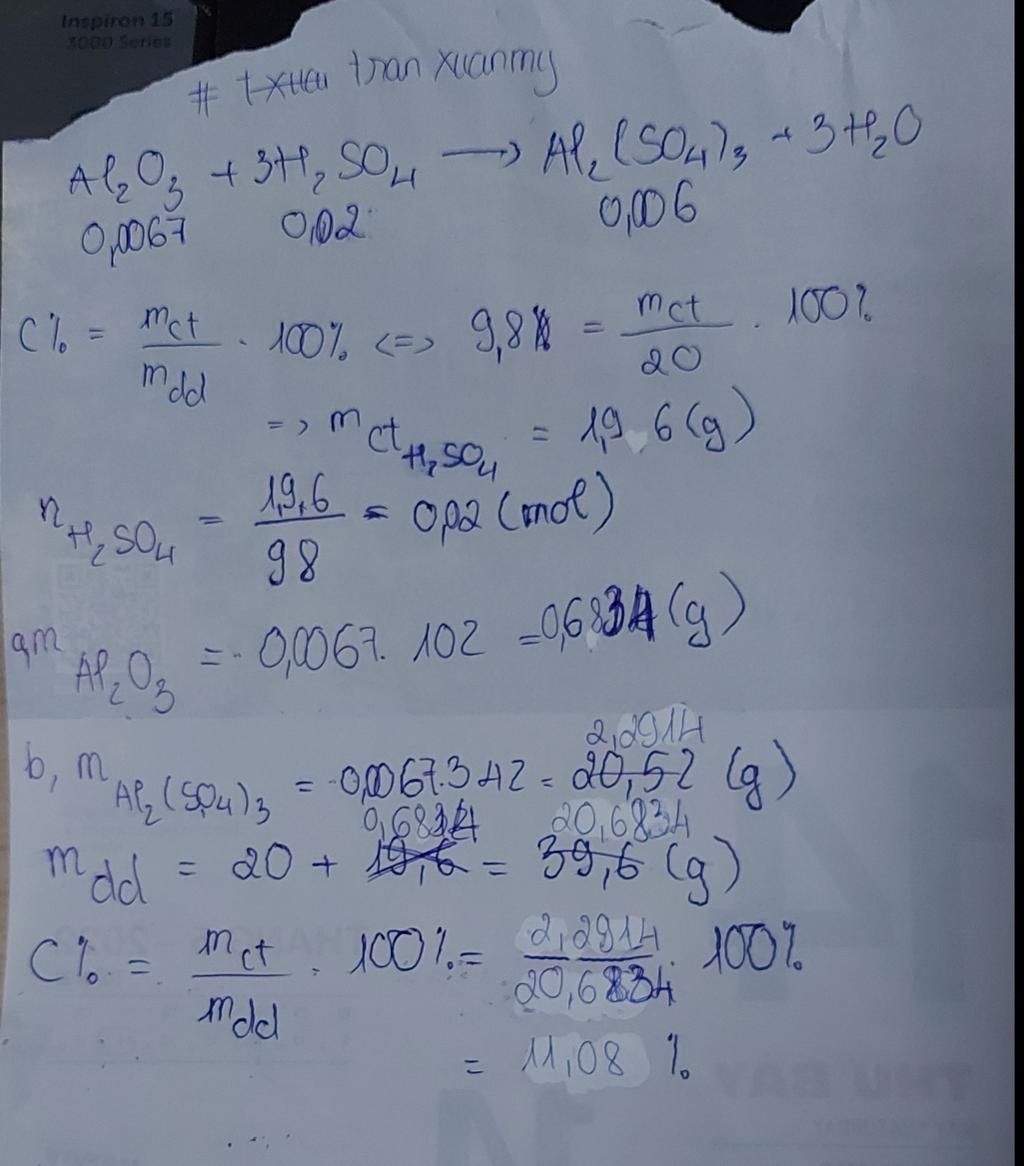 Inspiron 15
3000 Series
# tran xuanmy
Al₂O₃ + 3H₂SO₄ → Al₂(SO₄)₃ + 3H₂O
0,0067 0,02 0,006
C% = mct/mdd . 100% <=> 9,8 = mct/20 . 100%
=> mctH₂SO₄ = 1,96 (g)
nH₂SO₄ = 1,96/98 = 0,02 (mol)
a, mAl₂O₃ = 0,0067. 102 = 0,6834 (g)
b, mAl₂(SO₄)₃ = 0,0067.342 = 2,2914 (g)
mdd = 20 + 0,6834 = 20,6834 (g)
C% = mct/mdd . 100% = 2,2914/20,6834 . 100%
= 11,08 %
THU BAY